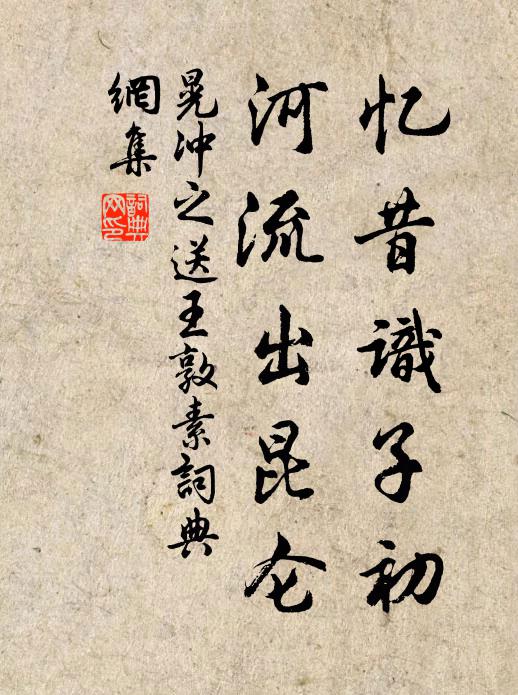 忆昔識子初
河流出昆仑
晁冲之送王敦素詞典
網集
詞典
网印